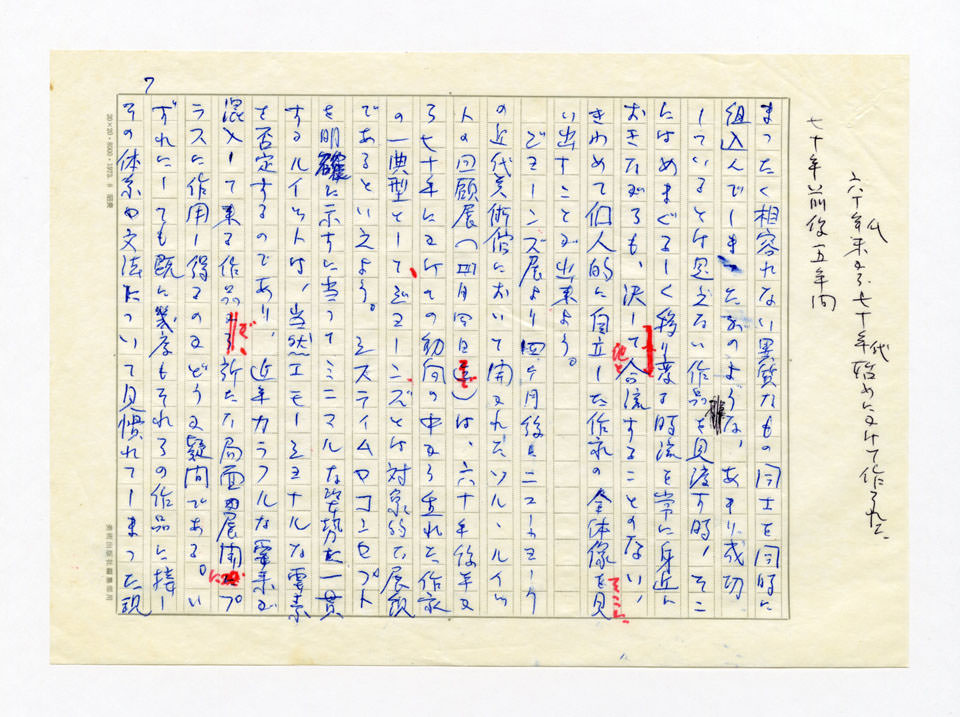 六十年代末から七十年代始めにかけて作られた
七十年前後五年間
まったく相容れない異質なもの同士を同時に
組込んでしまったかのような、あまり成功
しているとは思えない作品を見渡す時、そこ
にはめまぐるしく移り変る時流を常に身近に
おきながらも、決して他と合流することのない、
きわめて個人的に自立した作家の全体像をそこに見
い出すことが出来よう。
ジョーンズ展より四ヶ月後にニューヨーク
の近代美術館において開かれたソル・ルイッ
トの回顧展（四月四日迄）は、六十年後半か
ら七十年にかけての動向の中から生れた作家
の一典型として、ジョーンズとは対象的な展観
であるといえよう。システイムやコンセプト
を明確に示すに当ってミニマルな姿勢を一貫
するルイットは、当然エモーショナルな要素
を否定するのであり、近年カラフルな要素が
混入して来る作品が、新たな局面展開にプ
ラスに作用し得るのかどうか疑問である。い
ずれにしても既に幾度もそれらの作品に接し
その体系や文法について見慣れてしまった説
7
20×20・8000・1973.8 昭美
美術出版社編集部用